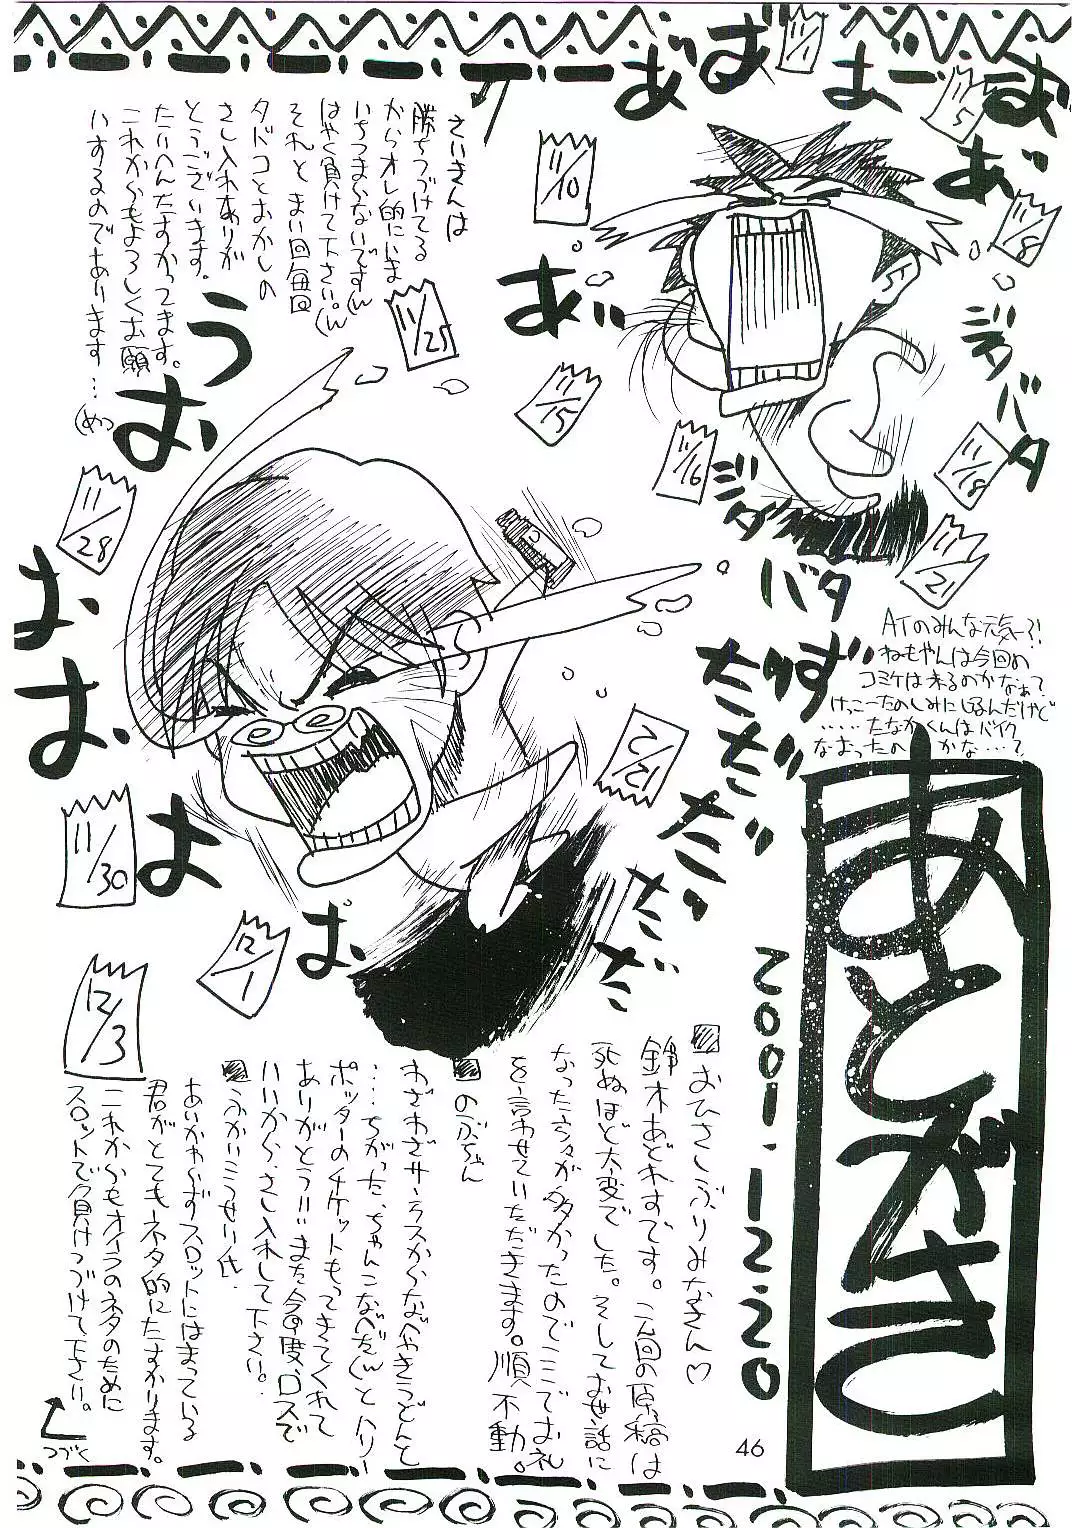 あとがき
2001.12.20
ATのみんな元気ー?!
ねもやんは今回の
コミケは来るのかなぁて
けっこーたのしみにしてるんだけど
.....たなかくんはバイク
なおったのかな...?
おひさしぶりみなさん♡
鈴木あどれすです。今回の原稿は
死ぬほど大変でした。そしてお世話に
なった方々が多かったのでここでお礼
を言わせていただきます。順不動。
のぶちゃん
わざわざサーラスからなべやきうどんと
....ちがった、ちゃんこなべだ(w とハリー
ポッターのチケットもってきてくれて
ありがとういいまた今度、ロスで
いいから、さし入れして下さい。
ふかいこうせい氏
あいかわらずスロットにはまっている
君がとてもネタ的にたすかります。
これからもオイラのネタのために
スロットで負けつづけて下さい。
つづく
さいきんは
勝ちつづけてる
からオレ的にいま
いちつまらないです(w
はやく負けて下さい。(w
それと まい回毎回
タドコとおかしの
さし入れありが
とうございます。
たいへんたすかってます。
これからもよろしくお願
いするのであります...(めっ
あ゛
お゛
ま゛ー
お゛
あ゛
あ゛
ジタ
バタ
ジタ
バタ
バタ
ずだだだだだだだ
うおおおおおよ
11/1
11/5
11/8
11/10
11/15
11/16
11/18
11/21
11/25
11/28
11/30
12/1
12/2
12/3
46